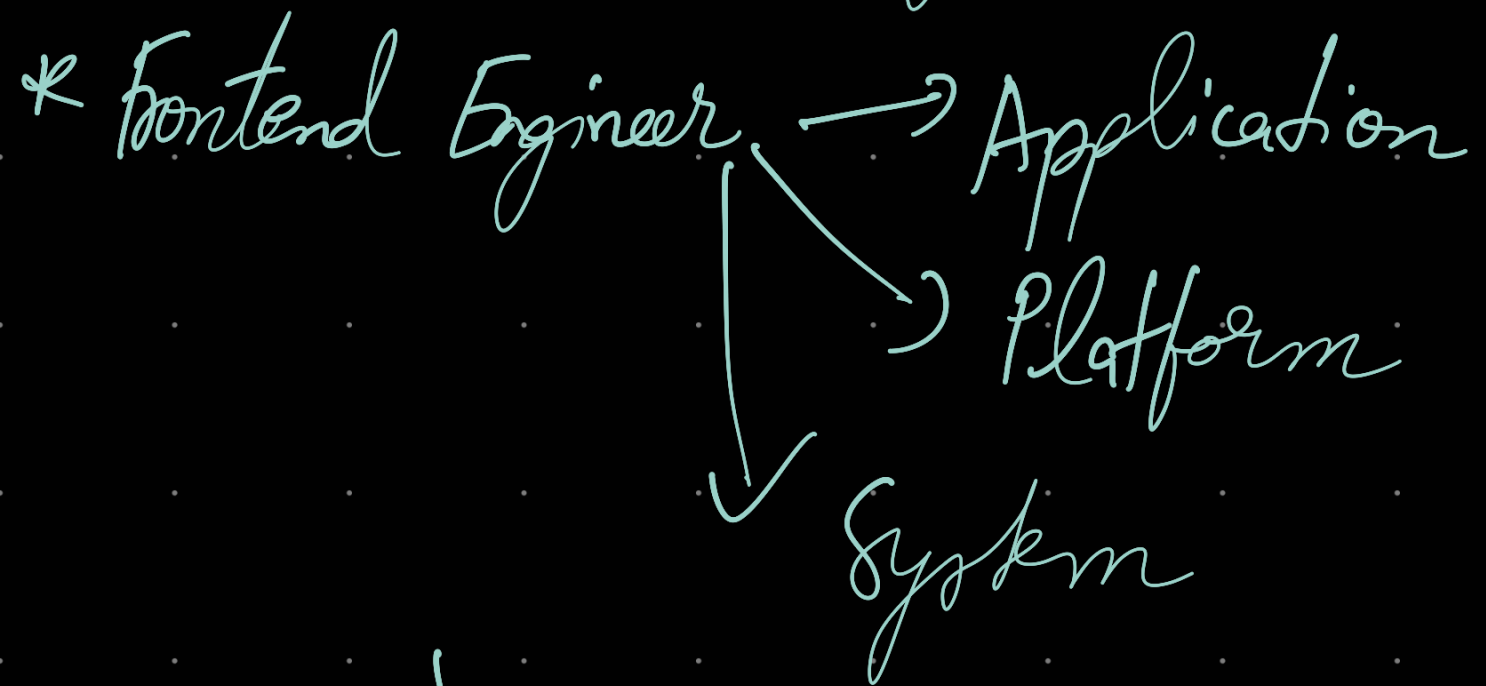 * Frontend Engineer → Application
Platform
System